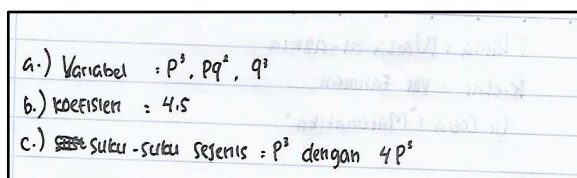 a.) Variabel : p³, pq², q³
b.) koefisien : 4.5
c.) suku-suku sejenis = p³ dengan 4p³